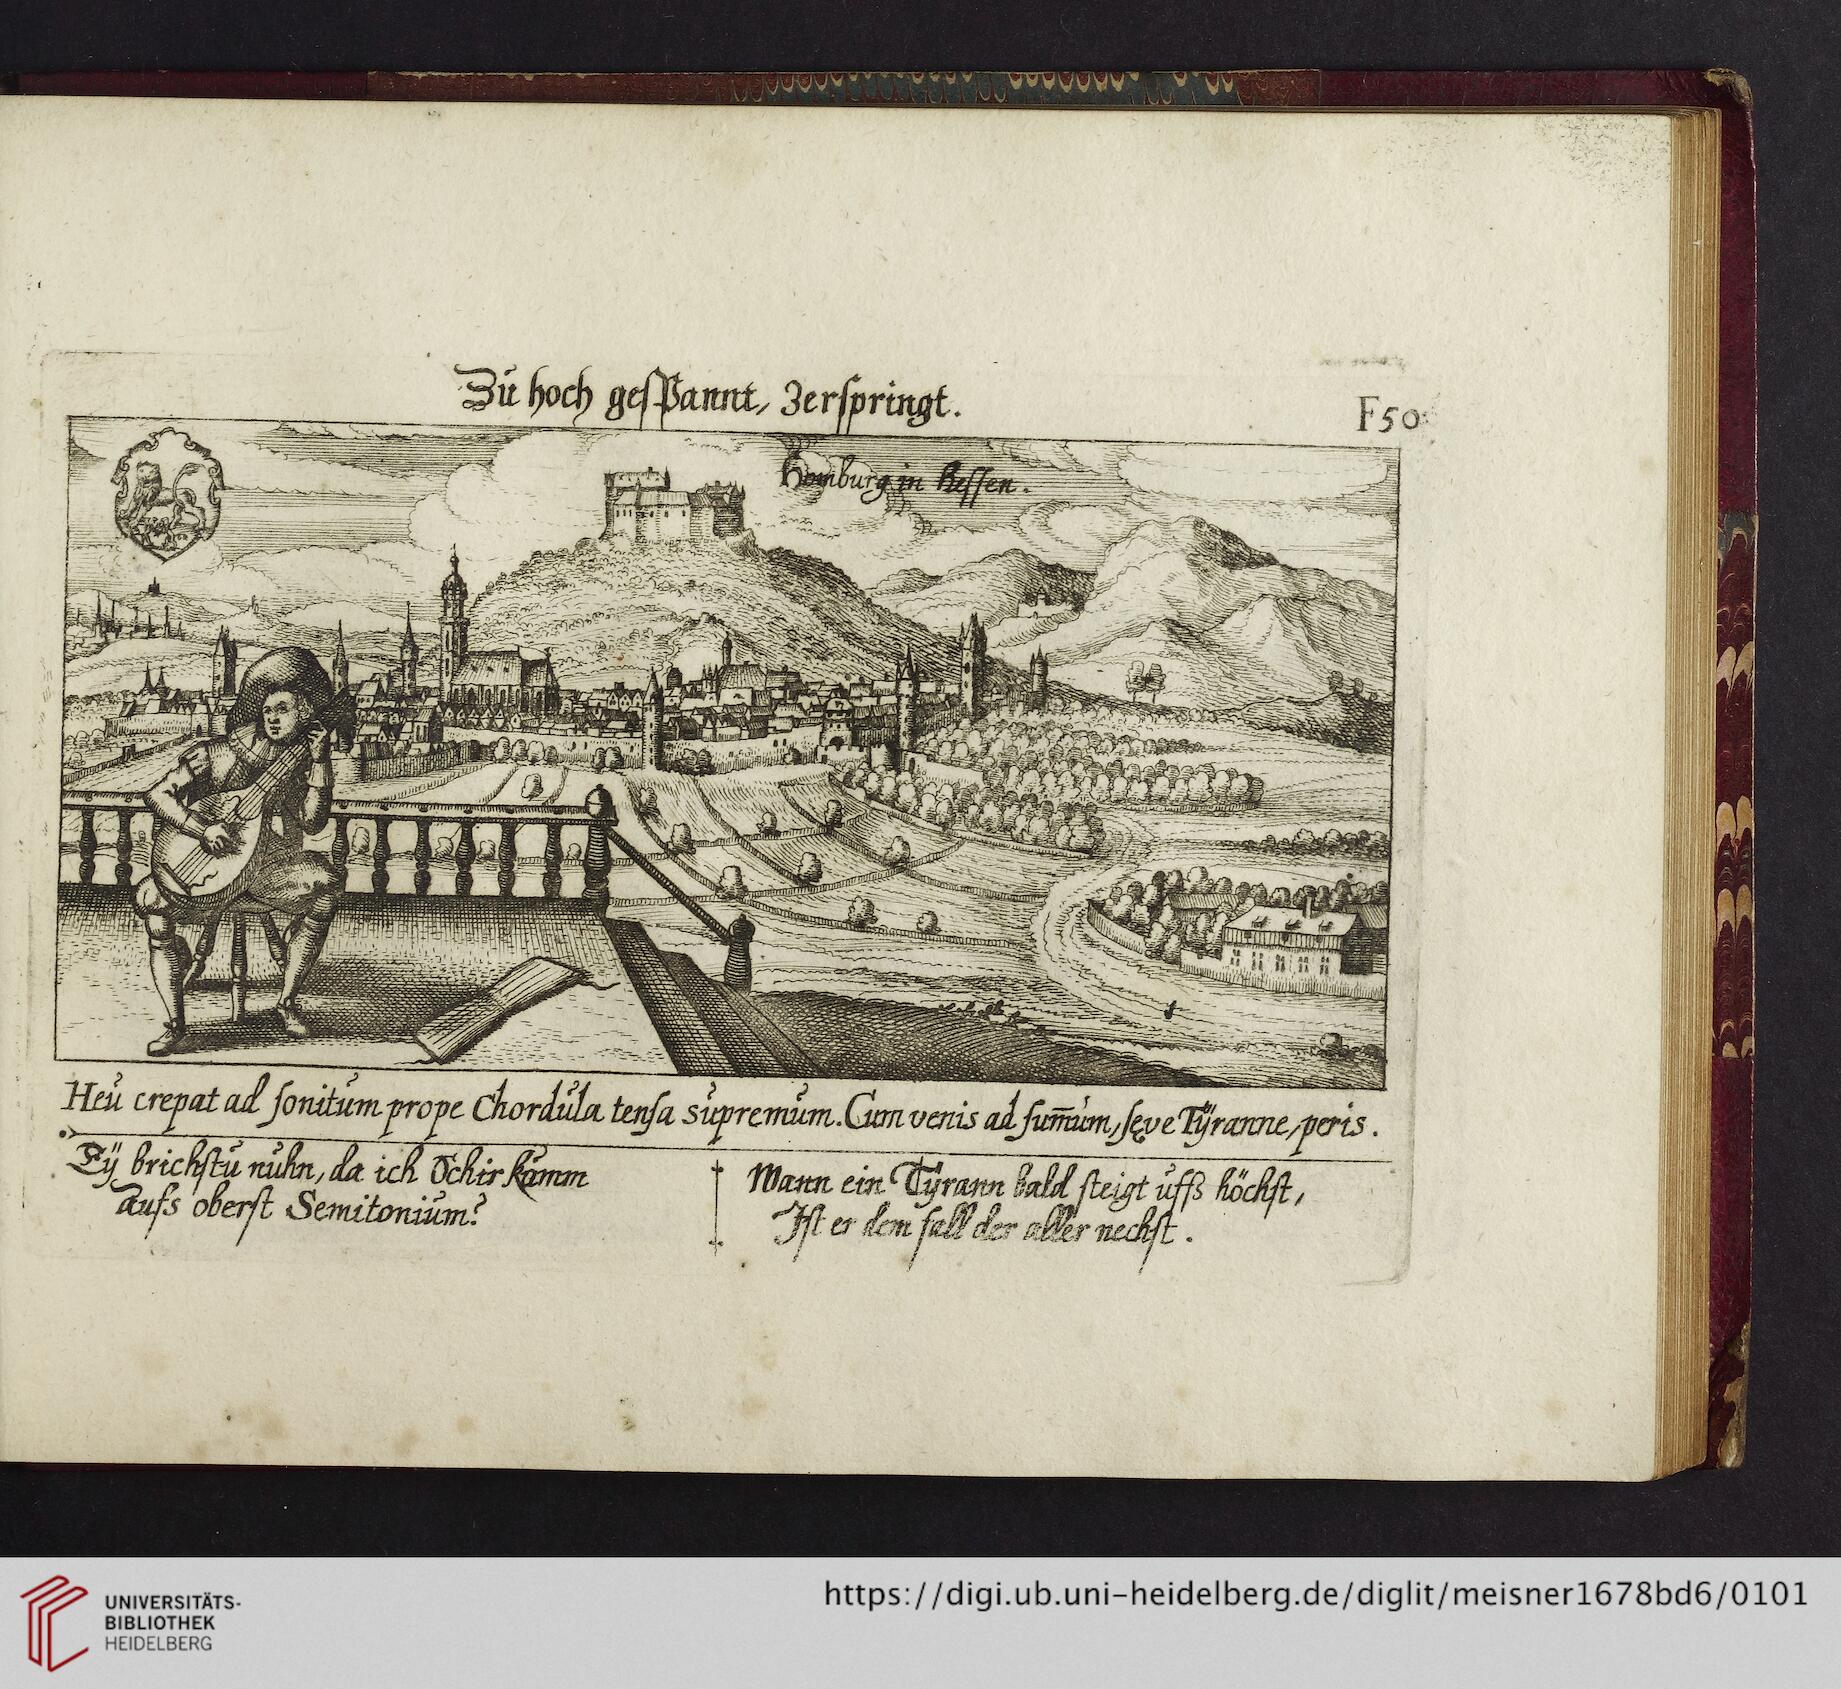 Zu hoch gespannt, zerspringt.
F50
Homburg in Hessen.
Heu crepat ad sonitum prope Chordula tensa supremum. Cum venis ad sum̄um, sęve Tÿranne, peris.
Eÿ brichstu nuhn, da ich schir kumm
aufs oberst Semitonium?
Wann ein Tÿrann bald steigt uffs höchst,
Ist er dem fall der aller nechst.
UNIVERSITÄTS-
BIBLIOTHEK
HEIDELBERG
https://digi.ub.uni-heidelberg.de/diglit/meisner1678bd6/0101